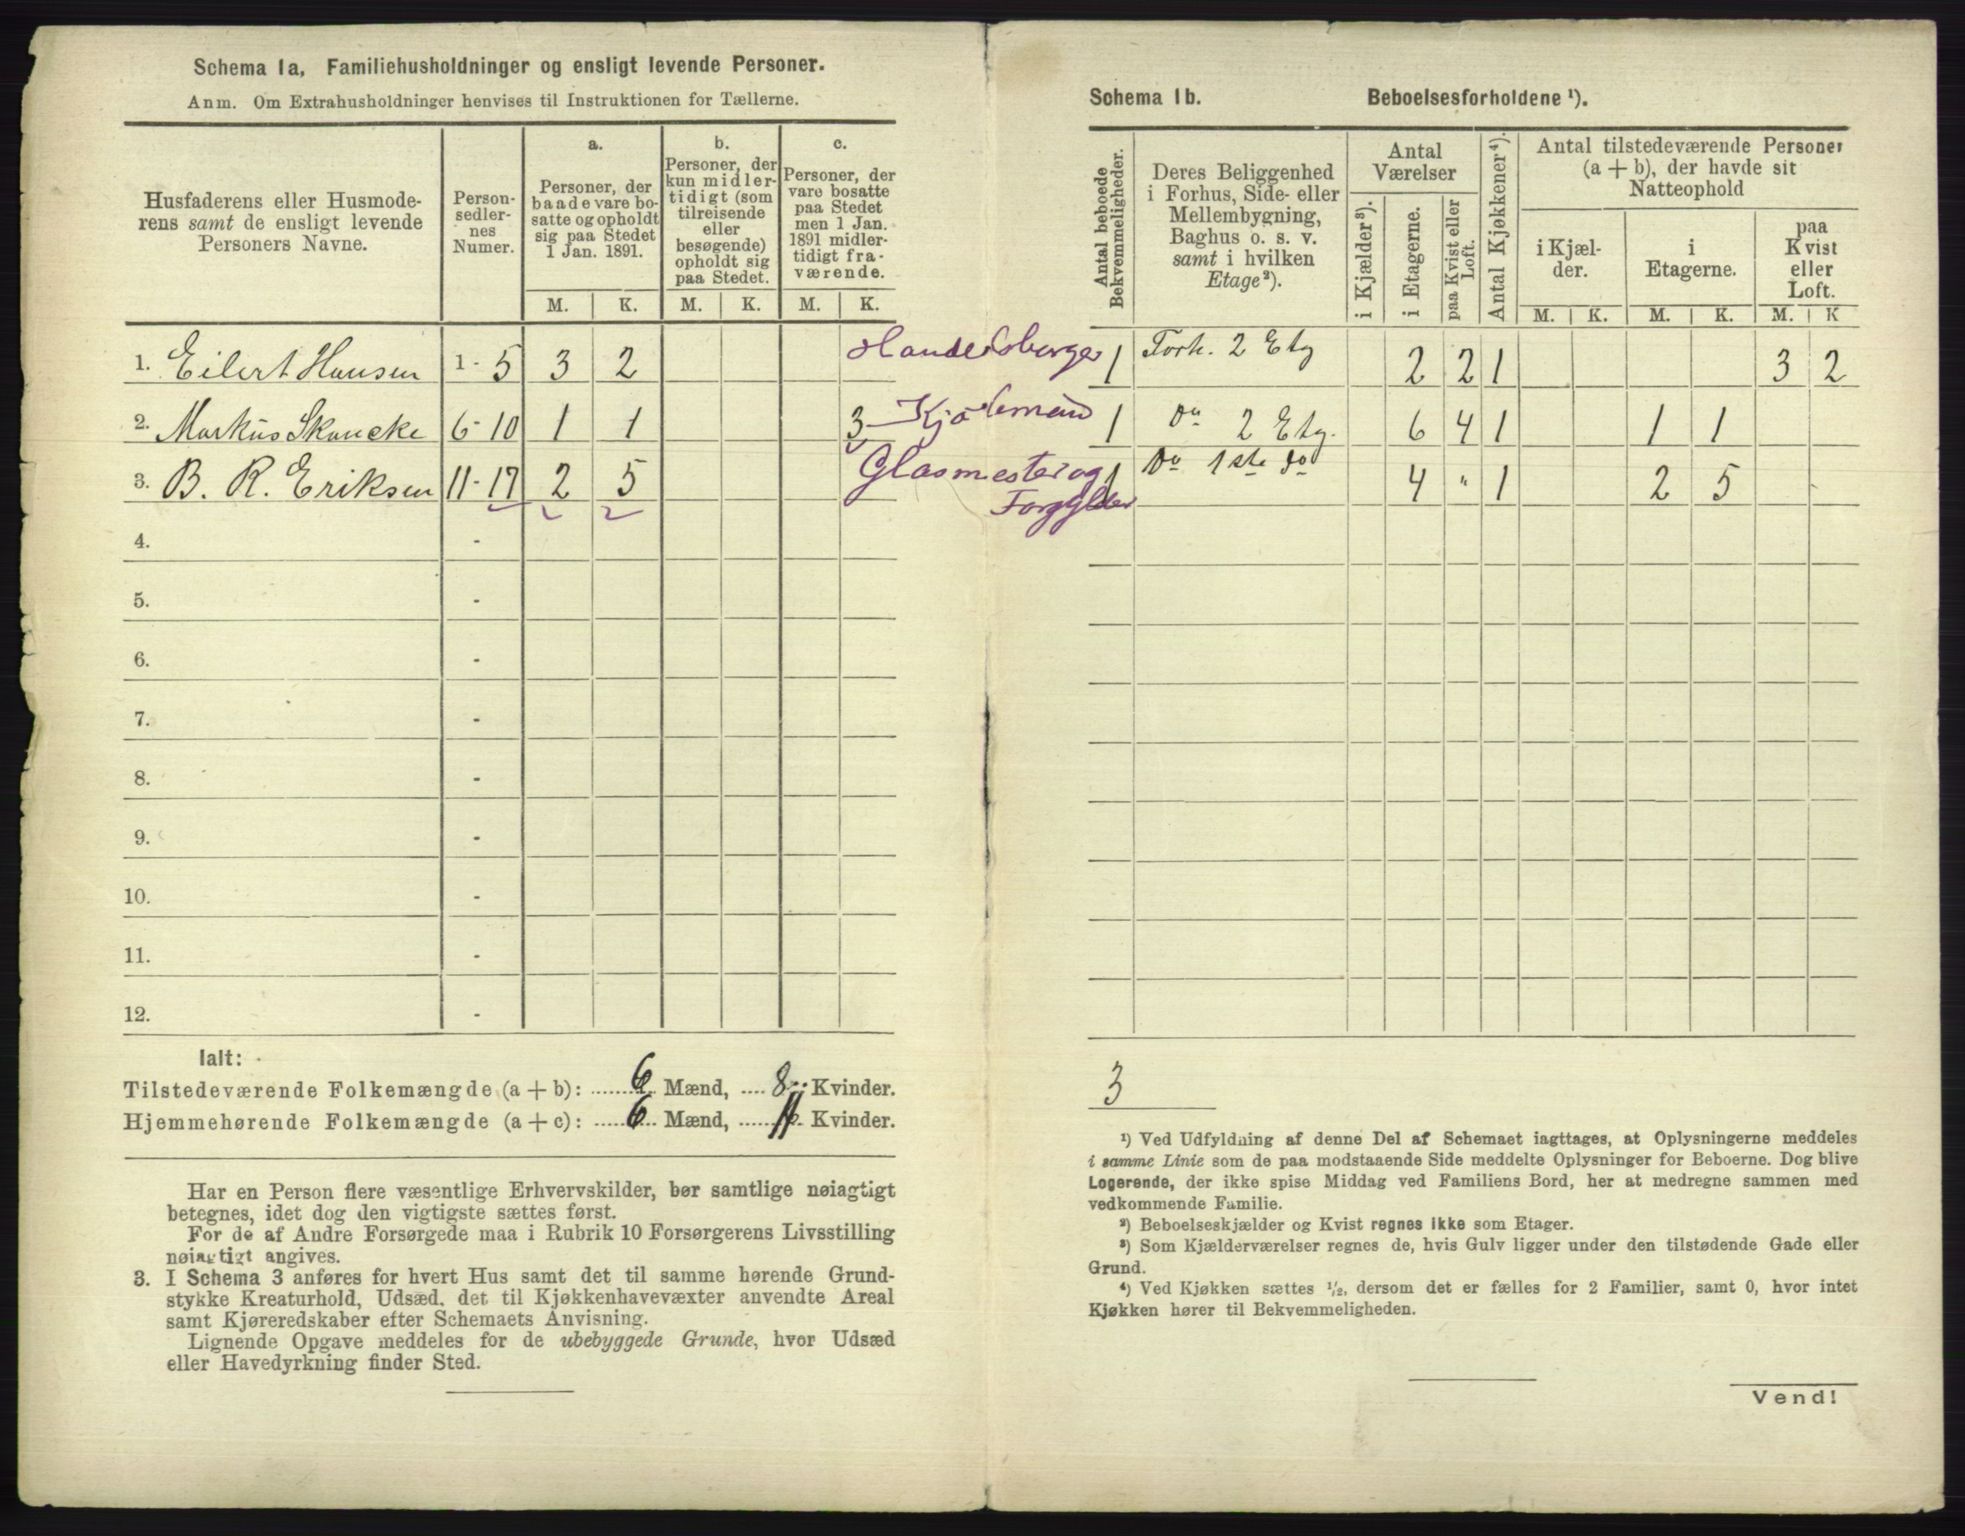 Schema 1a, Familiehusholdninger og ensligt levende Personer.
Anm. Om Extrahusholdninger henvises til Instruktionen for Tællerne.
Husfaderens eller Husmoderens samt de ensligt levende Personers Navne.
Personsedlernes Numer.
a. Personer, der baade vare bosatte og opholdt sig paa Stedet 1 Jan. 1891.
b. Personer, der kun midlertidigt (som tilreisende eller besøgende) opholdt sig paa Stedet.
c. Personer, der vare bosatte paa Stedet men 1 Jan. 1891 midlertidigt fraværende.
M. K. M. K. M. K.
1. Eilert Hansen 1-5 3 2 Handelsborger
2. Markus Skancke 6-10 1 1 3 Kjøbmand
3. B. R. Eriksen 11-17 2 5 Glasmester og
Forgylder
4. -
5. -
6. -
7. -
8. -
9. -
10. -
11. -
12. -
Ialt:
Tilstedeværende Folkemængde (a + b): 6 Mænd, 8 Kvinder.
Hjemmehørende Folkemængde (a + c): 6 Mænd, 11 Kvinder.
Har en Person flere væsentlige Erhvervskilder, bør samtlige nøiagtigt
betegnes, idet dog den vigtigste sættes først.
For de af Andre Forsørgede maa i Rubrik 10 Forsørgerens Livsstilling
nøiagtigt angives.
3. I Schema 3 anføres for hvert Hus samt det til samme hørende Grund-
stykke Kreaturhold, Udsæd, det til Kjøkkenhavevæxter anvendte Areal
samt Kjøreredskaber efter Schemaets Anvisning.
Lignende Opgave meddeles for de ubebyggede Grunde, hvor Udsæd
eller Havedyrkning finder Sted.
Schema 1b. Beboelsesforholdene ¹).
Antal beboede Bekvemmeligheder.
Deres Beliggenhed i Forhus, Side- eller Mellembygning, Baghus o. s. v. samt i hvilken Etage²).
Antal Værelser
i Kjælder³).
i Etagerne.
paa Kvist eller Loft.
Antal Kjøkkener⁴).
Antal tilstedeværende Personer (a + b), der havde sit Natteophold
i Kjælder.
i Etagerne.
paa Kvist eller Loft.
M. K. M. K. M. K
1 Forh. 2 Etg 2 2 1 3 2
1 Do 2 Etg. 6 4 1 1 1
1 Do 1ste do 4 " 1 2 5
3
¹) Ved Udfyldning af denne Del af Schemaet iagttages, at Oplysningerne meddeles
i samme Linie som de paa modstaaende Side meddelte Oplysninger for Beboerne. Dog blive
Logerende, der ikke spise Middag ved Familiens Bord, her at medregne sammen med
vedkommende Familie.
²) Beboelseskjælder og Kvist regnes ikke som Etager.
³) Som Kjælderværelser regnes de, hvis Gulv ligger under den tilstødende Gade eller
Grund.
⁴) Ved Kjøkken sættes ½, dersom det er fælles for 2 Familier, samt 0, hvor intet
Kjøkken hører til Bekvemmeligheden.
Vend!